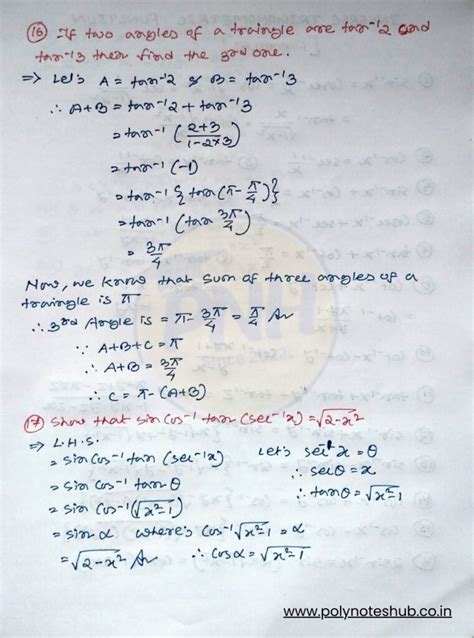 (16) If two angles of a traingle are tan⁻¹2 and
tan⁻¹3 then find the 3rd one.
⇒ Let's A = tan⁻¹2 & B = tan⁻¹3
∴ A+B = tan⁻¹2 + tan⁻¹3
= tan⁻¹ (2+3/1-2×3)
= tan⁻¹ (-1)
= tan⁻¹ {tan (π - π/4)}
= tan⁻¹ (tan 3π/4)
= 3π/4
Now, we know that sum of three angles of a
traingle is π
∴ 3rd Angle is = π - 3π/4 = π/4 Ans
∵ A+B+C = π
∴ A+B = 3π/4
∴ C = π - (A+B)
(17) Show that sin cos⁻¹ tan (sec⁻¹x) = √2-x²
⇒ L.H.S.
= sin cos⁻¹ tan (sec⁻¹x) Let's sec⁻¹x = θ
= sin cos⁻¹ tan θ ∴ secθ = x
= sin cos⁻¹ (√x²-1) ∴ tanθ = √x²-1
= sin α where's cos⁻¹√x²-1 = α
= √2-x² Ans ∴ cosα = √x²-1
www.polynoteshub.co.in